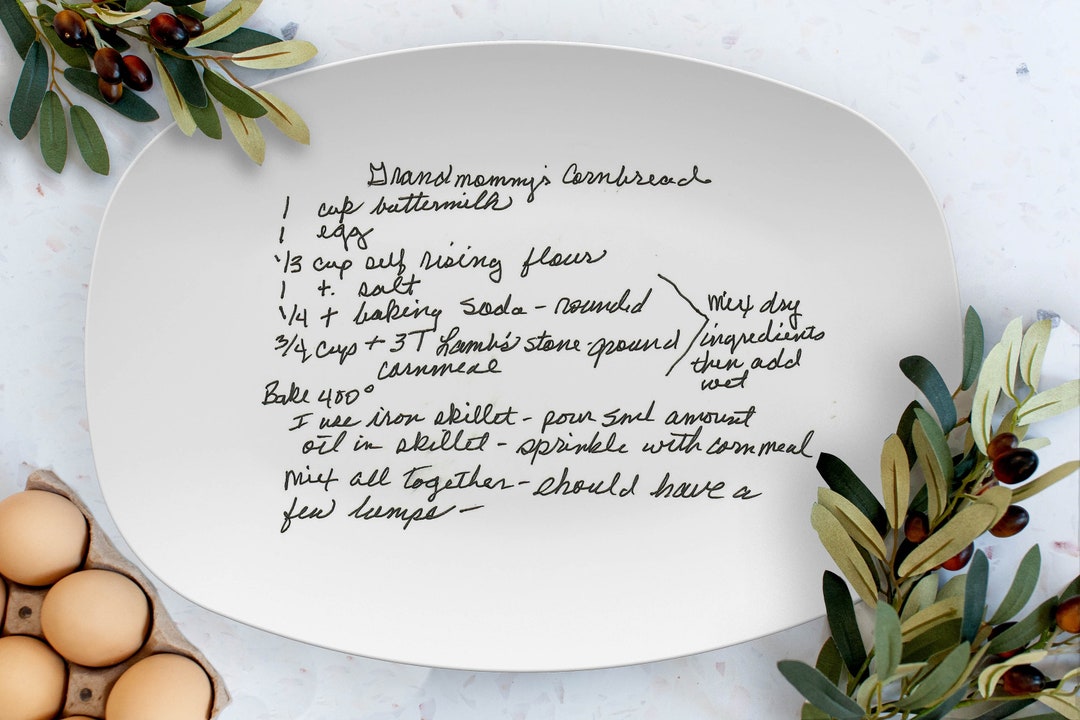 Grandmommy's Cornbread
1 cup buttermilk
1 egg
1/3 cup self rising flour
1 t. salt
1/4 t baking soda - rounded
3/4 cup + 3T Lamb's stone-ground
cornmeal
Mix dry
ingredients
then add
wet
Bake 400°
I use iron skillet - pour sml amount
oil in skillet - sprinkle with cornmeal
Mix all together - should have a
few lumps -